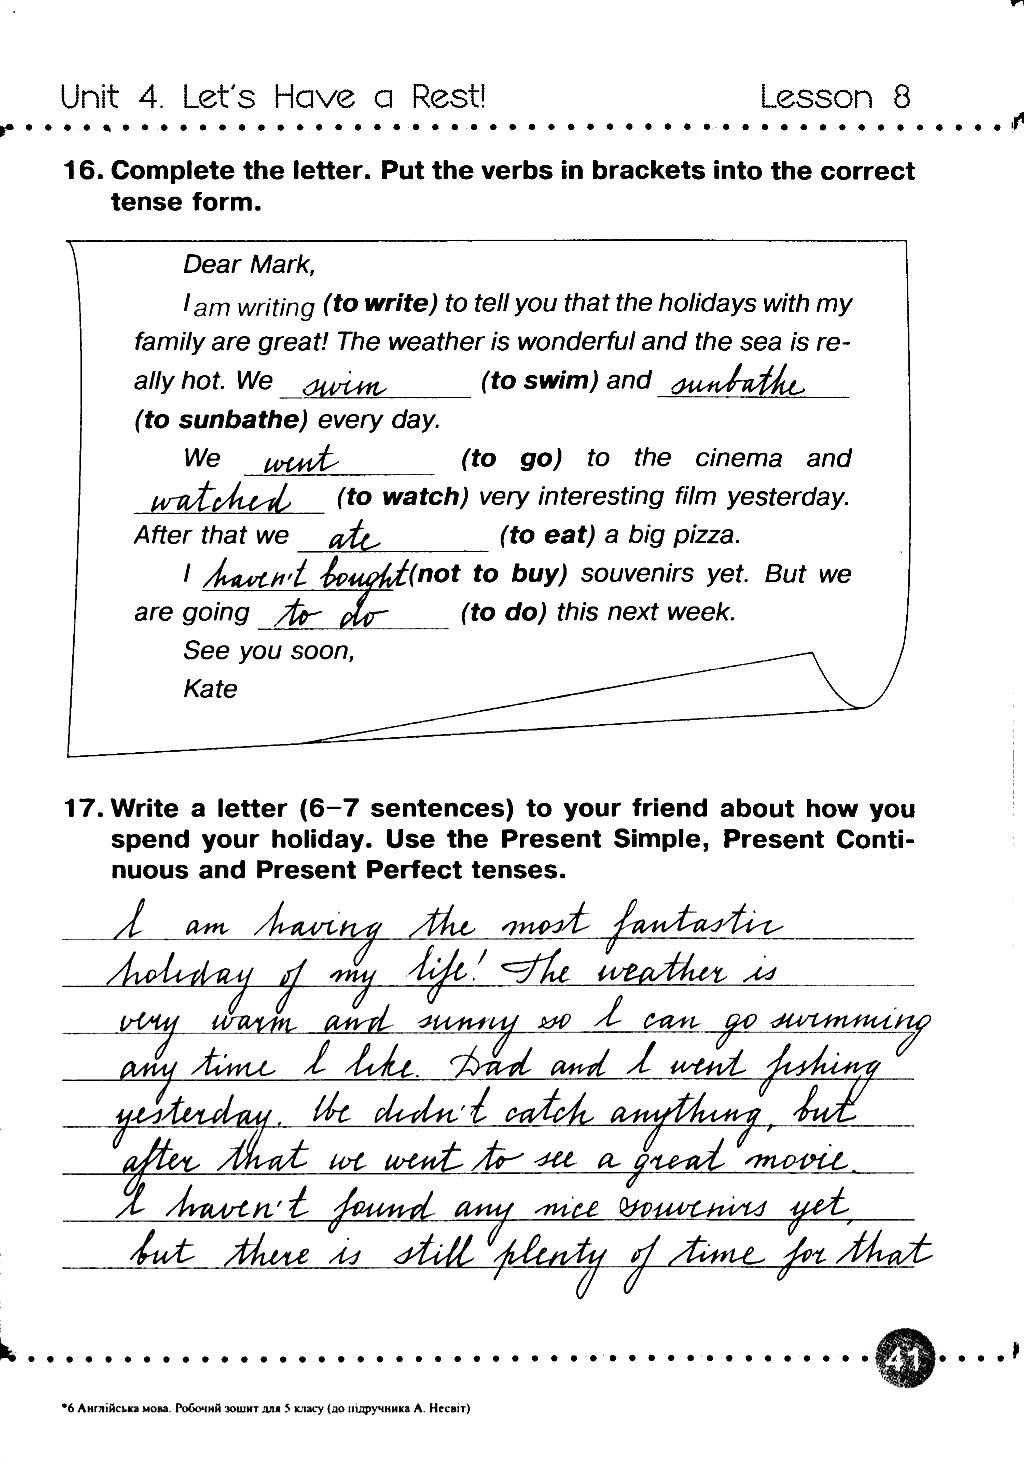 Unit 4. Let's Have a Rest! Lesson 8
16. Complete the letter. Put the verbs in brackets into the correct
tense form.
Dear Mark,
I am writing (to write) to tell you that the holidays with my
family are great! The weather is wonderful and the sea is re-
ally hot. We swim (to swim) and sunbathe
(to sunbathe) every day.
We went (to go) to the cinema and
watched (to watch) very interesting film yesterday.
After that we ate (to eat) a big pizza.
I haven't bought (not to buy) souvenirs yet. But we
are going to do (to do) this next week.
See you soon,
Kate
17. Write a letter (6–7 sentences) to your friend about how you
spend your holiday. Use the Present Simple, Present Conti-
nuous and Present Perfect tenses.
I am having the most fantastic
holiday of my life! The weather is
very warm and sunny so I can go swimming
any time I like. Dad and I went fishing
yesterday. We didn't catch anything, but
after that we went to see a great movie.
I haven't found any nice souvenirs yet,
but there is still plenty of time for that
41
*6 Англійська мова. Робочий зошит для 5 класу (до підручника А. Несвіт)